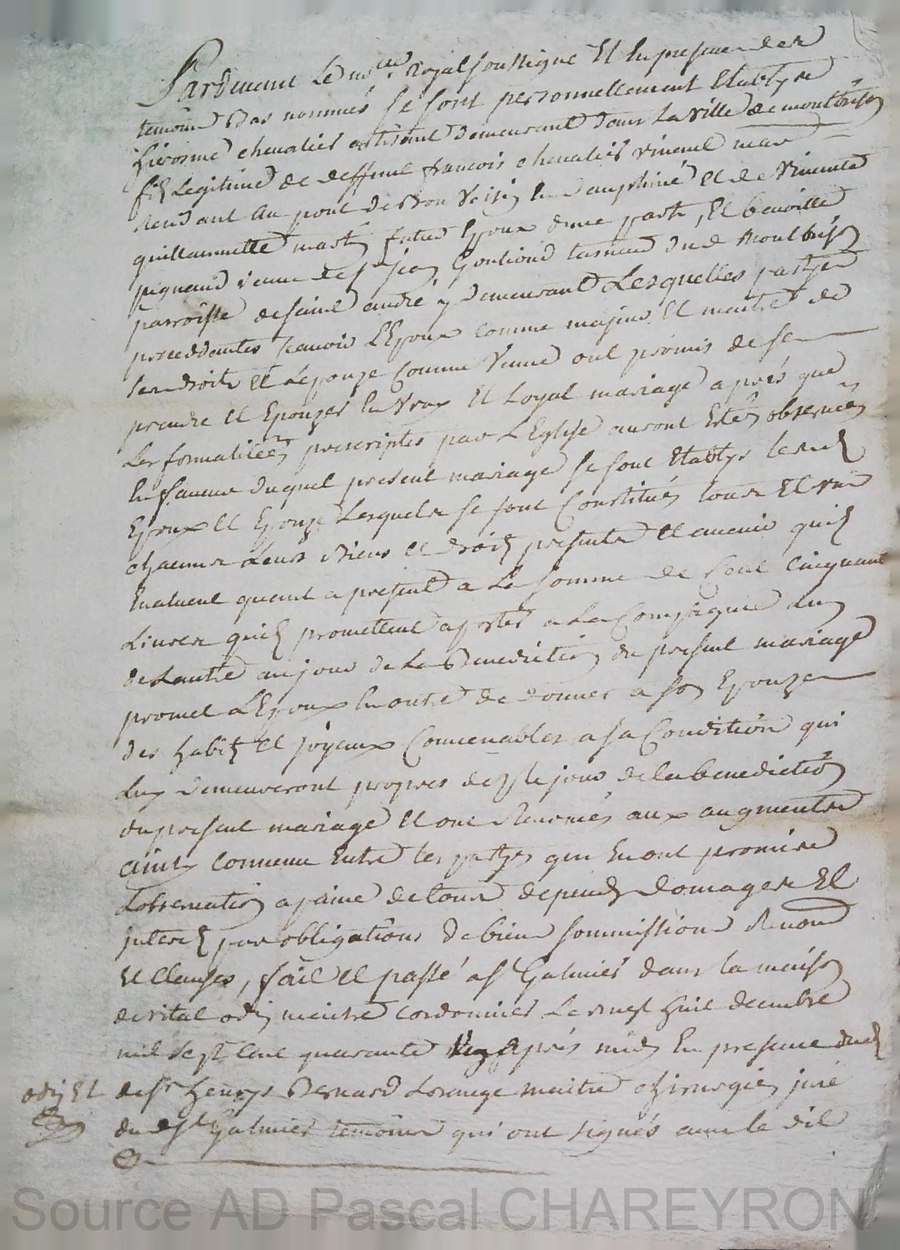 Pardevant le no.re Royal soussigne Et En presence des
temoins Bas nommés se sont personnellement Etablys
hierosme chevalier artisant demeurant dans la ville de montbrison
fils Legitime de deffunt francois chevalier vivant mar
chand au pont de Bon Voisin En dauphiné Et de Vivente
guillaumette martin futur Epoux d'une part, Et benoitte
pignaud veuve de sr jean tarneud du d montbrison
parroisse de saint andré y demeurant Lesquelles partyes
proceddantes scavoir L'Epoux comme majeur Et maitre de
ses droits Et L'epouze comme veuve ont promis de se
prendre Et Epouzer En vray Et Loyal mariage après que
Les formalitées prescriptes par L'Eglise auront Estés observées
En faveur duquel present mariage se sont Etablys lesd
Epoux Et Epouze Lesquels se sont Constitués tous Et un
chacuns Leurs Biens Et droits presents Et avenir quils
Evaluent quant a present a La somme de Cent Cinquante
Livres quils promettent aporter a La Compagnie L'un
de Lautre au jour de La Benediction du present mariage
promet L'Epoux En outre de donner a son Epouze
des habits Et joyaux Convenables a sa Condition qui
Luy demeureront propres dez le jour de la benediction
du present mariage Et ont aux augments
ainsy convenu Entre les partyes qui En ont promis
Lobservation a paine de tous depends domages Et
interets par obligations de biens sommissions Renon
Et Clauses, fait Et passé a st Galmier dans la maison
de vital odin maitre cordonnier Le vingt huit decembre
mil sept cent quarante après midy En presence dud
odin Et
de sr henry Bernard Lorange maitre chirurgien juré
du d st Galmier temoins qui ont signés avec le dit
Source AD Pascal CHAREYRON